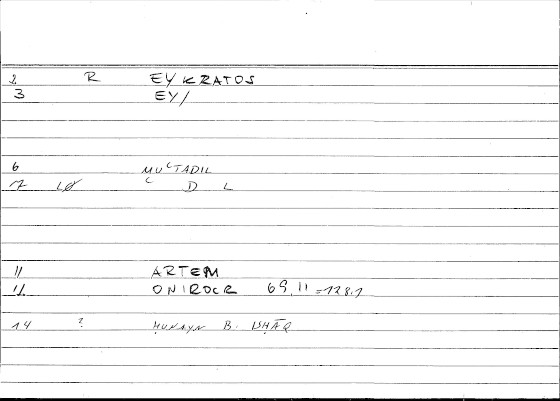 2 R EY KRATOS
3 EY/
6 MUᶜTADIL
ᶜ D L
11 ARTEM
11 ONIROCR 69,11 = 128.1
14 ? ḤUNAYN B. ISḤĀQ